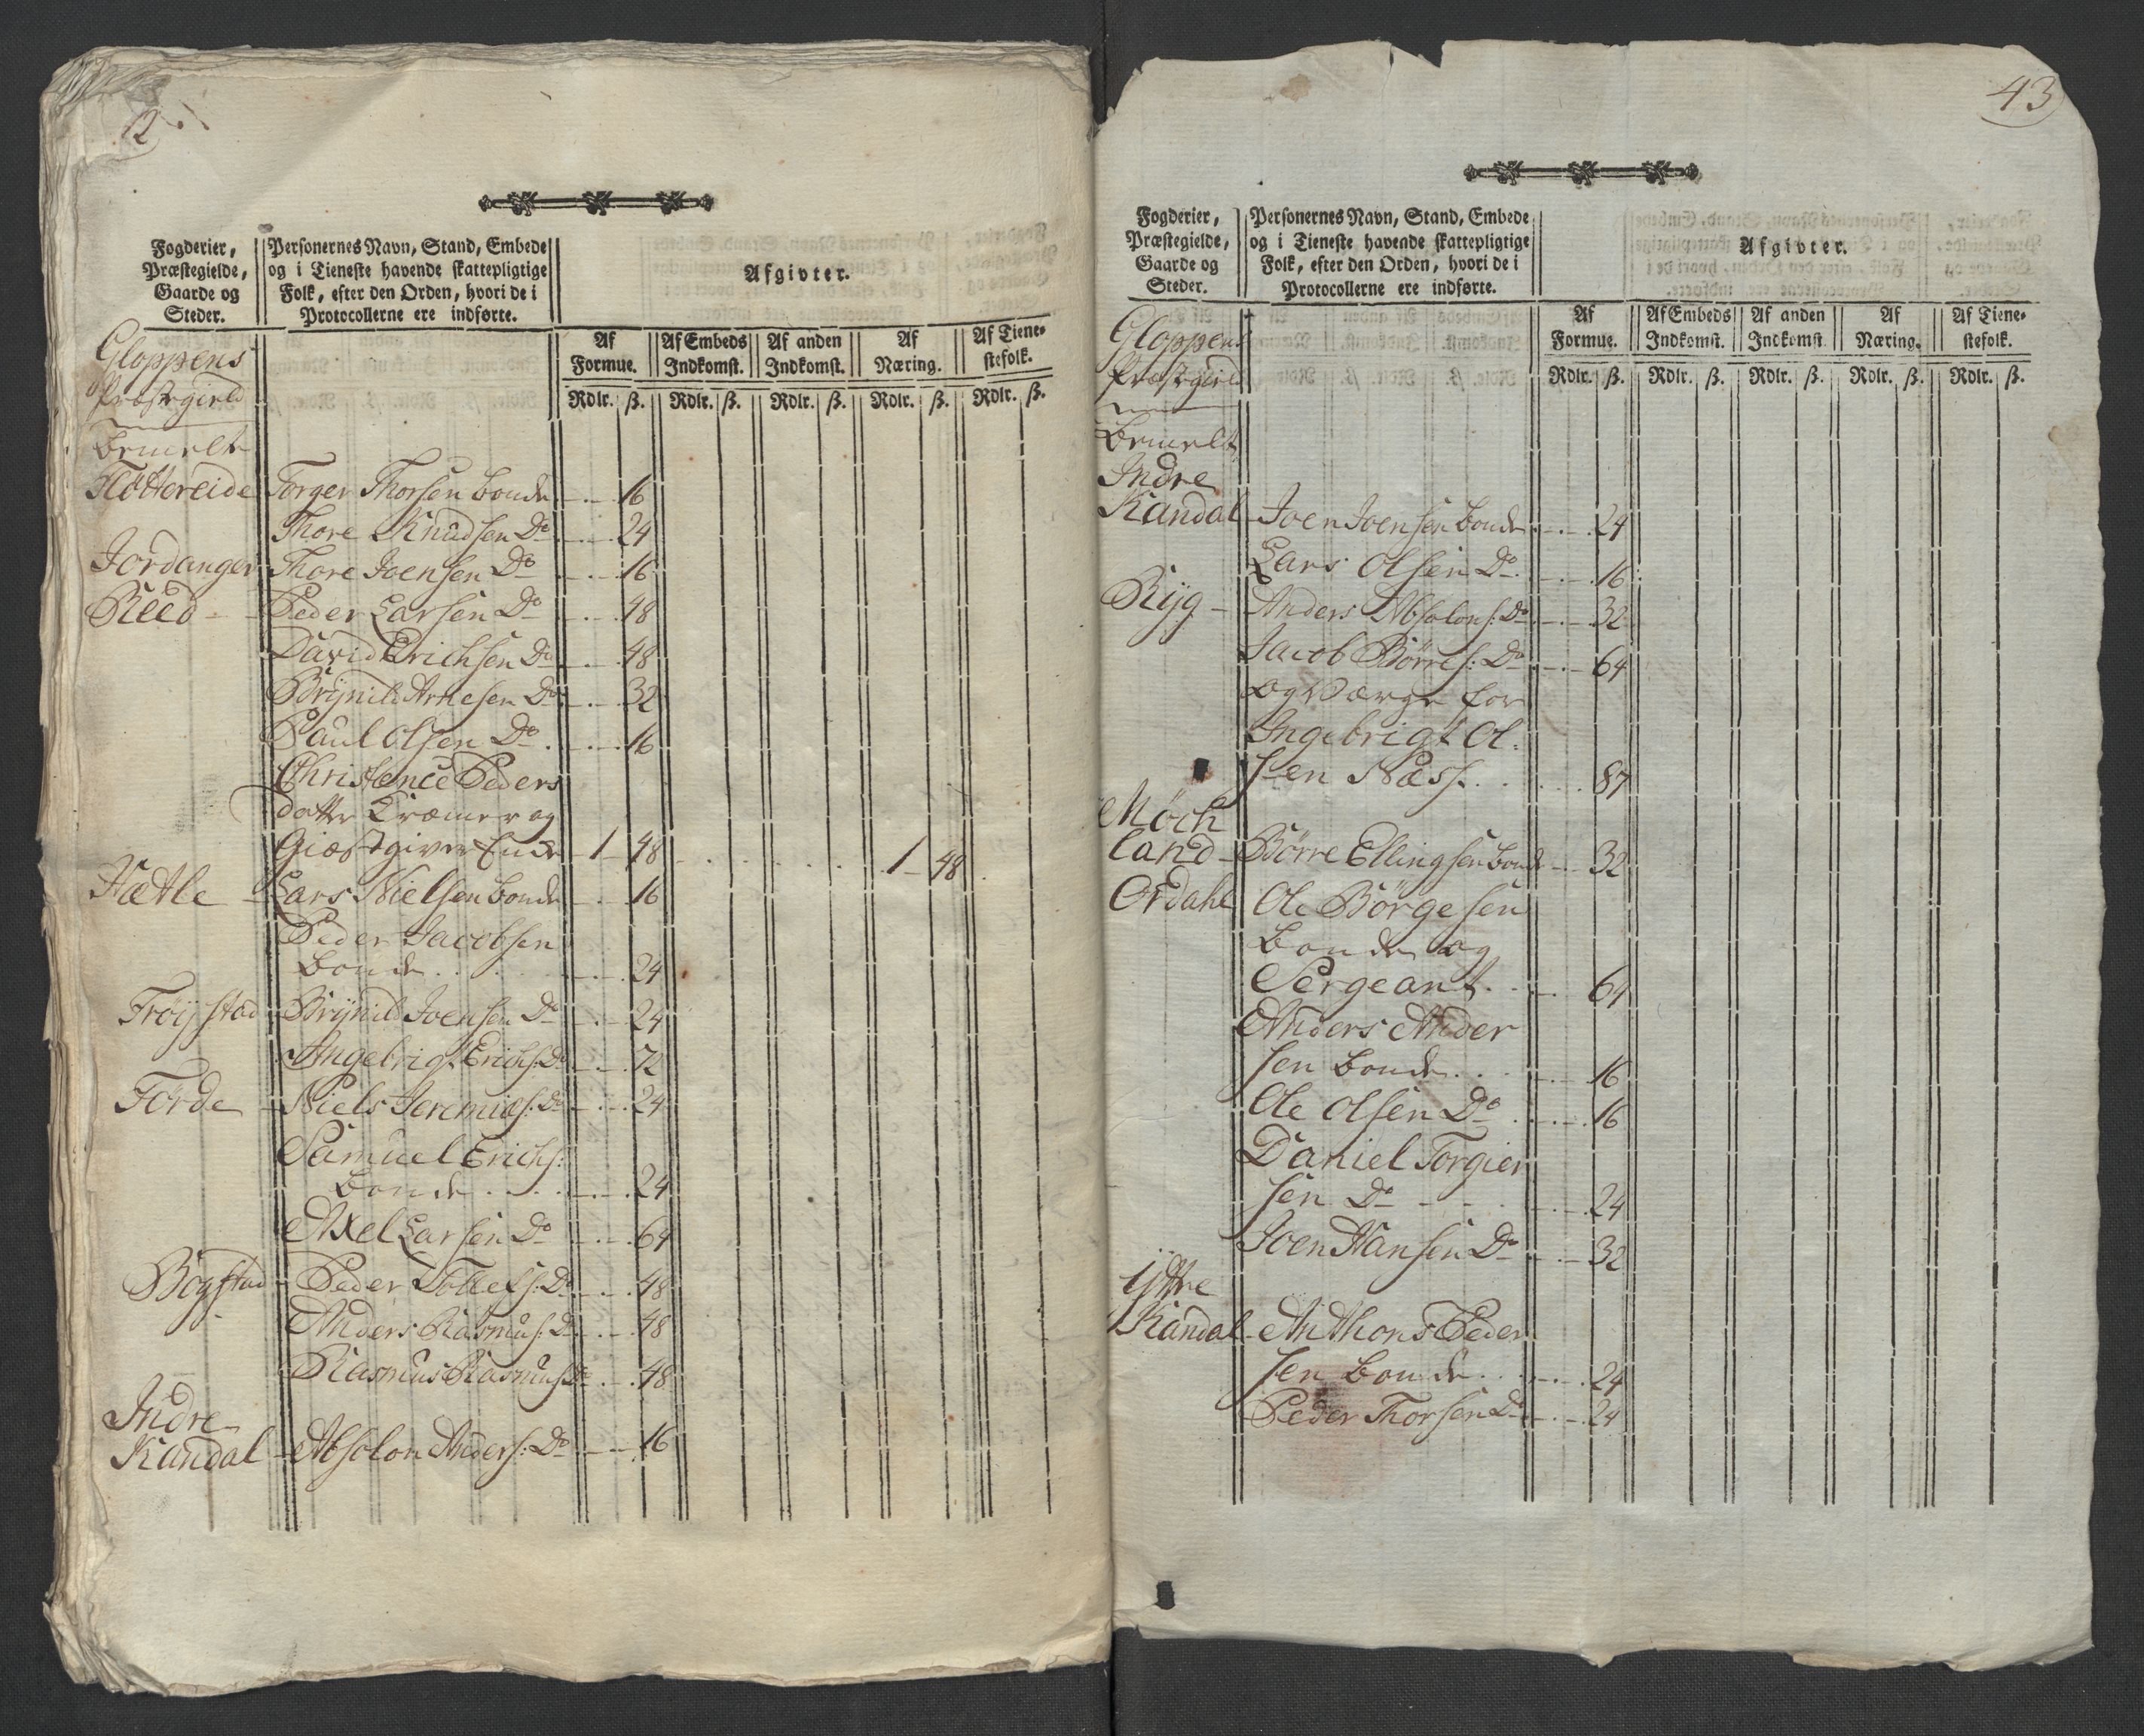 Fogderier, Præstegielde, Gaarde og Steder.
Personernes Navn, Stand, Embede og i Tieneste havende skattepligtige Folk, efter den Orden, hvori de i Protocollerne ere indførte.
Afgivter.
Af Formue. Af Embeds Indkomst. Af anden Indkomst. Af Næring. Af Tienestefolk.
Rdlr. ß. Rdlr. ß. Rdlr. ß. Rdlr. ß. Rdlr. ß.
Gloppens
Præstegield
Bemelte
Fløttereide Torger Thorsen Bonde 16
Thore Knudsen Do 24
Jordanger Thore Joensen Do 16
Reed Peder Larsen Do 48
David Erichsen Do 48
Brÿnild Arnesen Do 32
Paul Olsen Do 16
Christence Peders
datter Kræmer og
Giæstgiver Enke 1 48 1 48
Hætle Lars Nielsen Bonde 16
Peder Jacobsen
Bonde 24
Trøÿstad Brÿnild Joensen Do 24
Ingebrigt Erichs: Do 72
Førde Niels Jeremias: Do 24
Samuel Erichs:
Bonde 24
Axel Larsen Do 64
Bogstad Peder Tollefs: Do 48
Anders Rasmus: Do 48
Rasmus Rasmus: Do 48
Indre
Kandal Absolon Anders: Do 16
43
Fogderier, Præstegielde, Gaarde og Steder.
Personernes Navn, Stand, Embede og i Tieneste havende skattepligtige Folk, efter den Orden, hvori de i Protocollerne ere indførte.
Afgivter.
Af Formue. Af Embeds Indkomst. Af anden Indkomst. Af Næring. Af Tienestefolk.
Rdlr. ß. Rdlr. ß. Rdlr. ß. Rdlr. ß. Rdlr. ß.
Gloppens
Præstegield
Bemelte
Indre
Kandal Joen Joensen Bonde 24
Lars Olsen Do 16
Rÿg Anders Absolons: Do 32
Jacob Børres: Do 64
og Værge for
Ingebrigt Ol:
sen Næss 87
Moch
land Børre Ellingsen Bonde 32
Ordahl Ole Børgesen
Bonde og
Sergeant 64
Anders Ander
sen Bonde 16
Ole Olsen Do 16
Daniel Torgier
sen Do 24
Joen Hansen Do 32
ÿttre
Kandal Anthons Peder
sen Bonde 24
Peder Thorsen Do 24